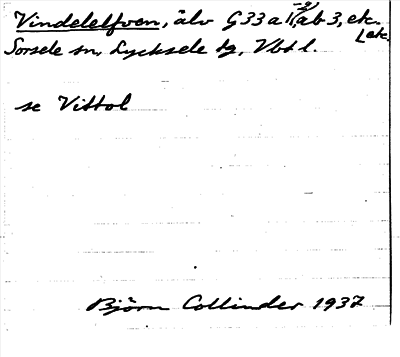 Vindelelfven, älv G33a 11ab3, ek.
Sorsele sn, Lycksele tg, Vbtl.
se Vittol
Björn Collinder 1937